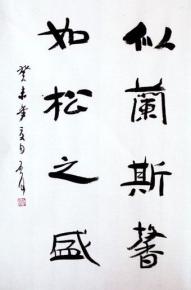 似蘭斯馨
如松之盛
癸未年夏月